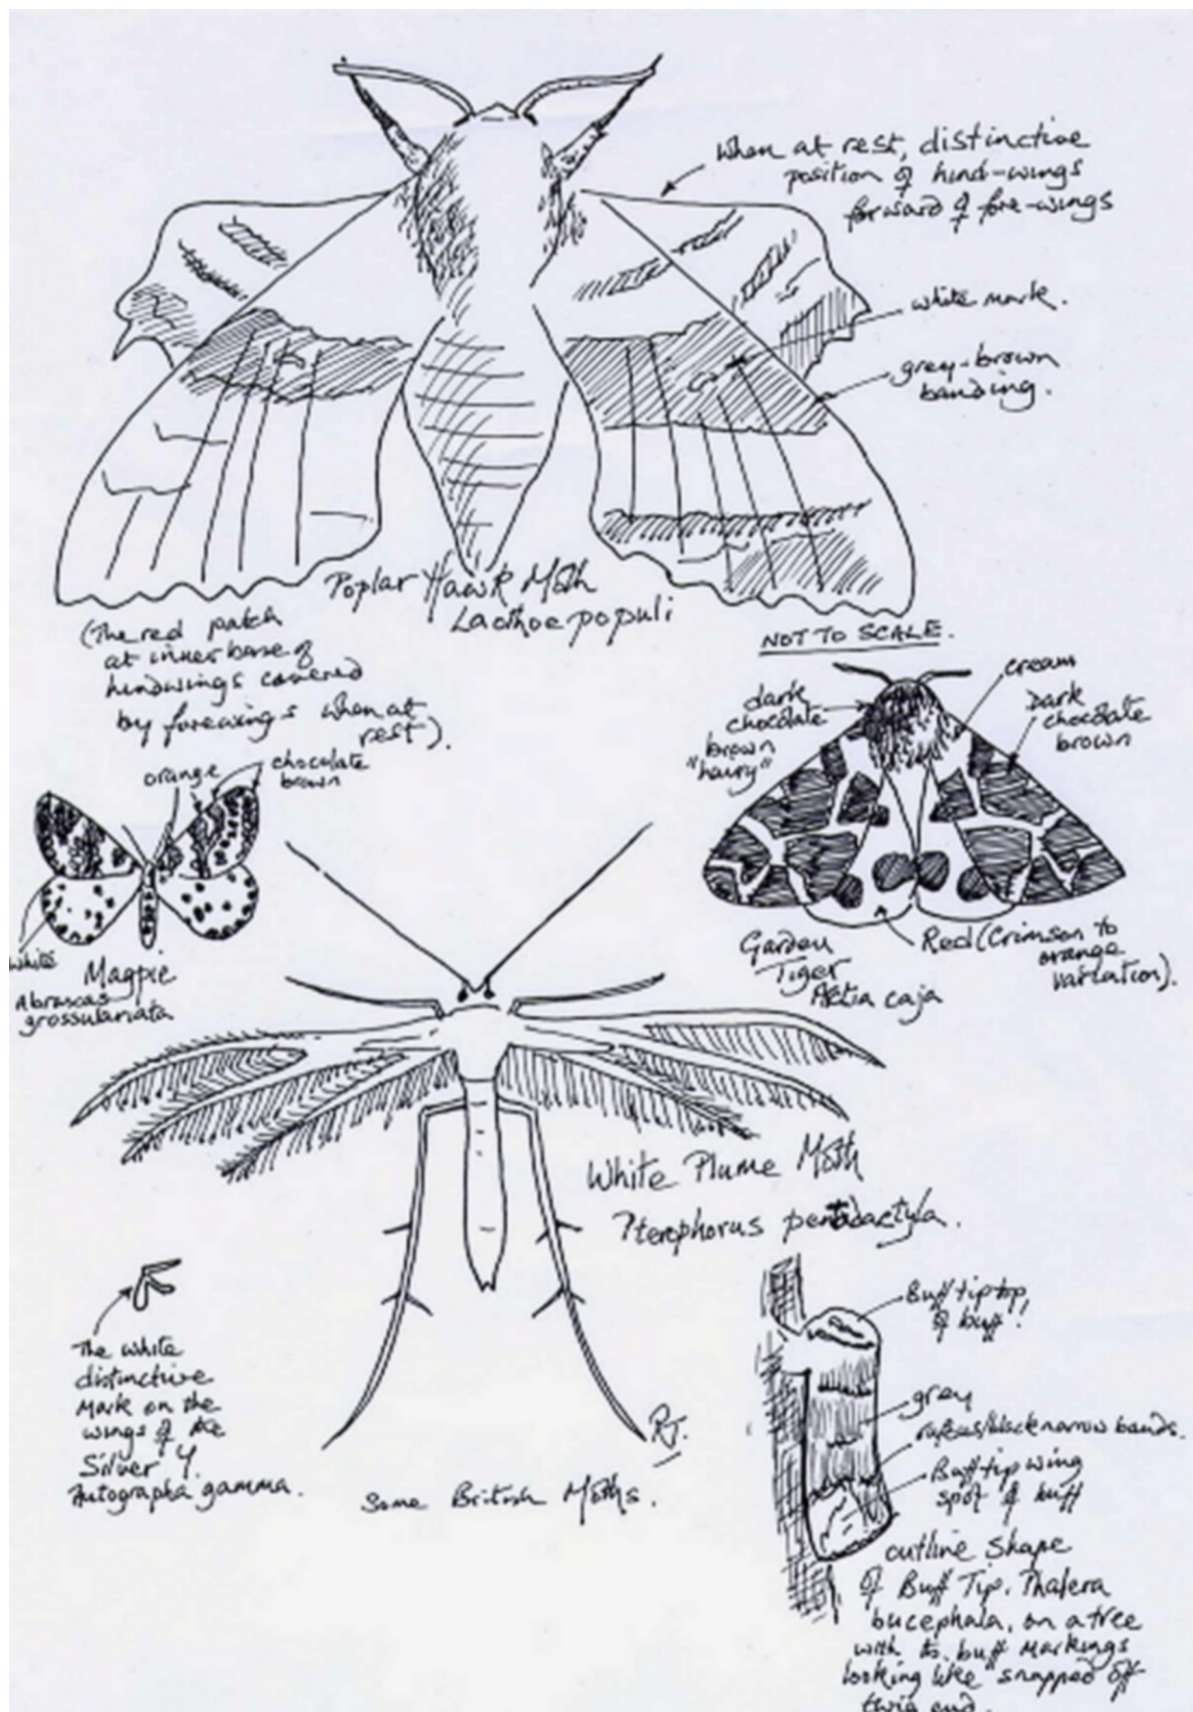 When at rest, distinctive
position of hind-wings
forward of fore-wings
white mark.
grey-brown
banding.
Poplar Hawk Moth
Laothoe populi
(The red patch
at inner base of
hindwings covered
by forewings when at
rest).
NOT TO SCALE.
cream
dark
chocolate
brown
"hairy"
Dark
chocolate
brown
orange
chocolate
brown
white
Magpie
Abraxas
grossulariata
Garden
Tiger
Actia caja
Red (Crimson to
orange
variation).
White Plume Moth
Pterophorus pentadactyla.
The white
distinctive
Mark on the
wings of the
Silver Y.
Autographa gamma.
Some British Moths.
RJ.
Buff tip top
of buff!
grey
rufous/black narrow bands.
Buff tip wing
spot of buff
outline shape
of Buff Tip. Phalera
bucephala, on a tree
with its buff markings
looking like "snapped off
twig end.